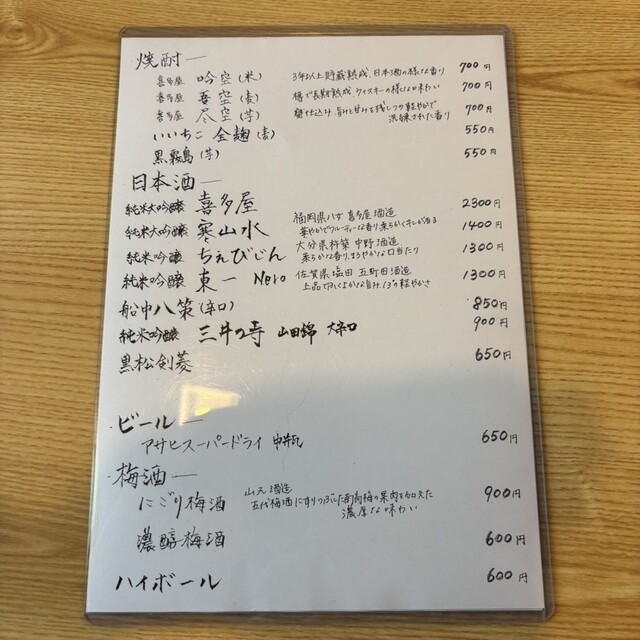 焼酎
喜多屋 吟空(米) 3年以上貯蔵熟成、日本酒の様な香り 700円
喜多屋 吾空(麦) 樽で長期熟成、ウィスキーの様な味わい 700円
喜多屋 尽空(芋) 甕仕込み、旨みと甘みを残しつつ軽やかで 700円
洗練された香り
いいちこ 全麹(麦) 550円
黒霧島(芋) 550円
日本酒
純米大吟醸 喜多屋 2300円
福岡県八女 喜多屋酒造
純米大吟醸 寒山水 華やかでフルーティーな香り、柔らかくキレがある 1400円
大分県杵築 中野酒造
純米吟醸 ちえびじん 柔らかな香り、まろやかな口当たり 1300円
佐賀県塩田 五町田酒造
純米吟醸 東一 Nero 上品で心よかな旨み、ほの軽やかさ 1300円
船中八策(辛口) 850円
純米吟醸 三井の寿 山田錦 大辛口 900円
黒松剣菱 650円
ビール
アサヒスーパードライ 中瓶 650円
梅酒
山元酒造
にごり梅酒 五代梅酒にすりつぶした南高梅の果肉を加えた 900円
濃厚な味わい
濃醇梅酒 600円
ハイボール 600円